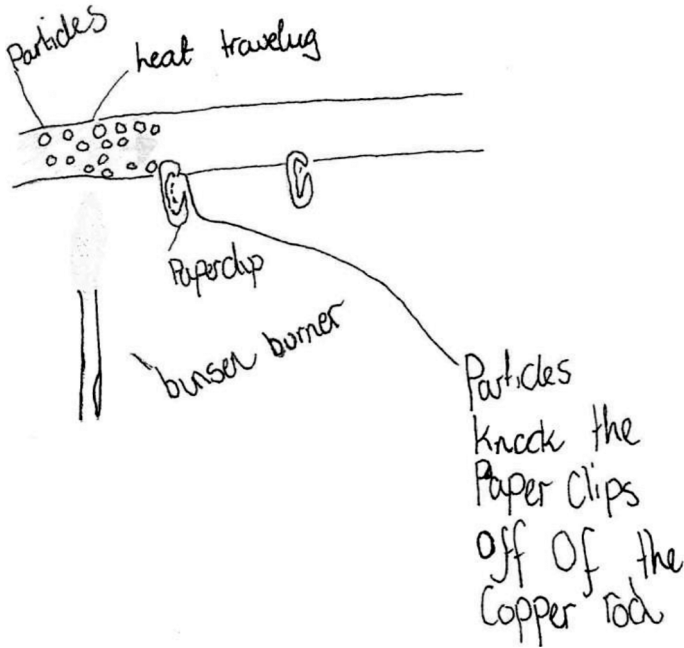 Particles
heat travelug
Paperclip
bunsen burner
Particles
Knock the
Paper Clips
off Of the
Copper rod